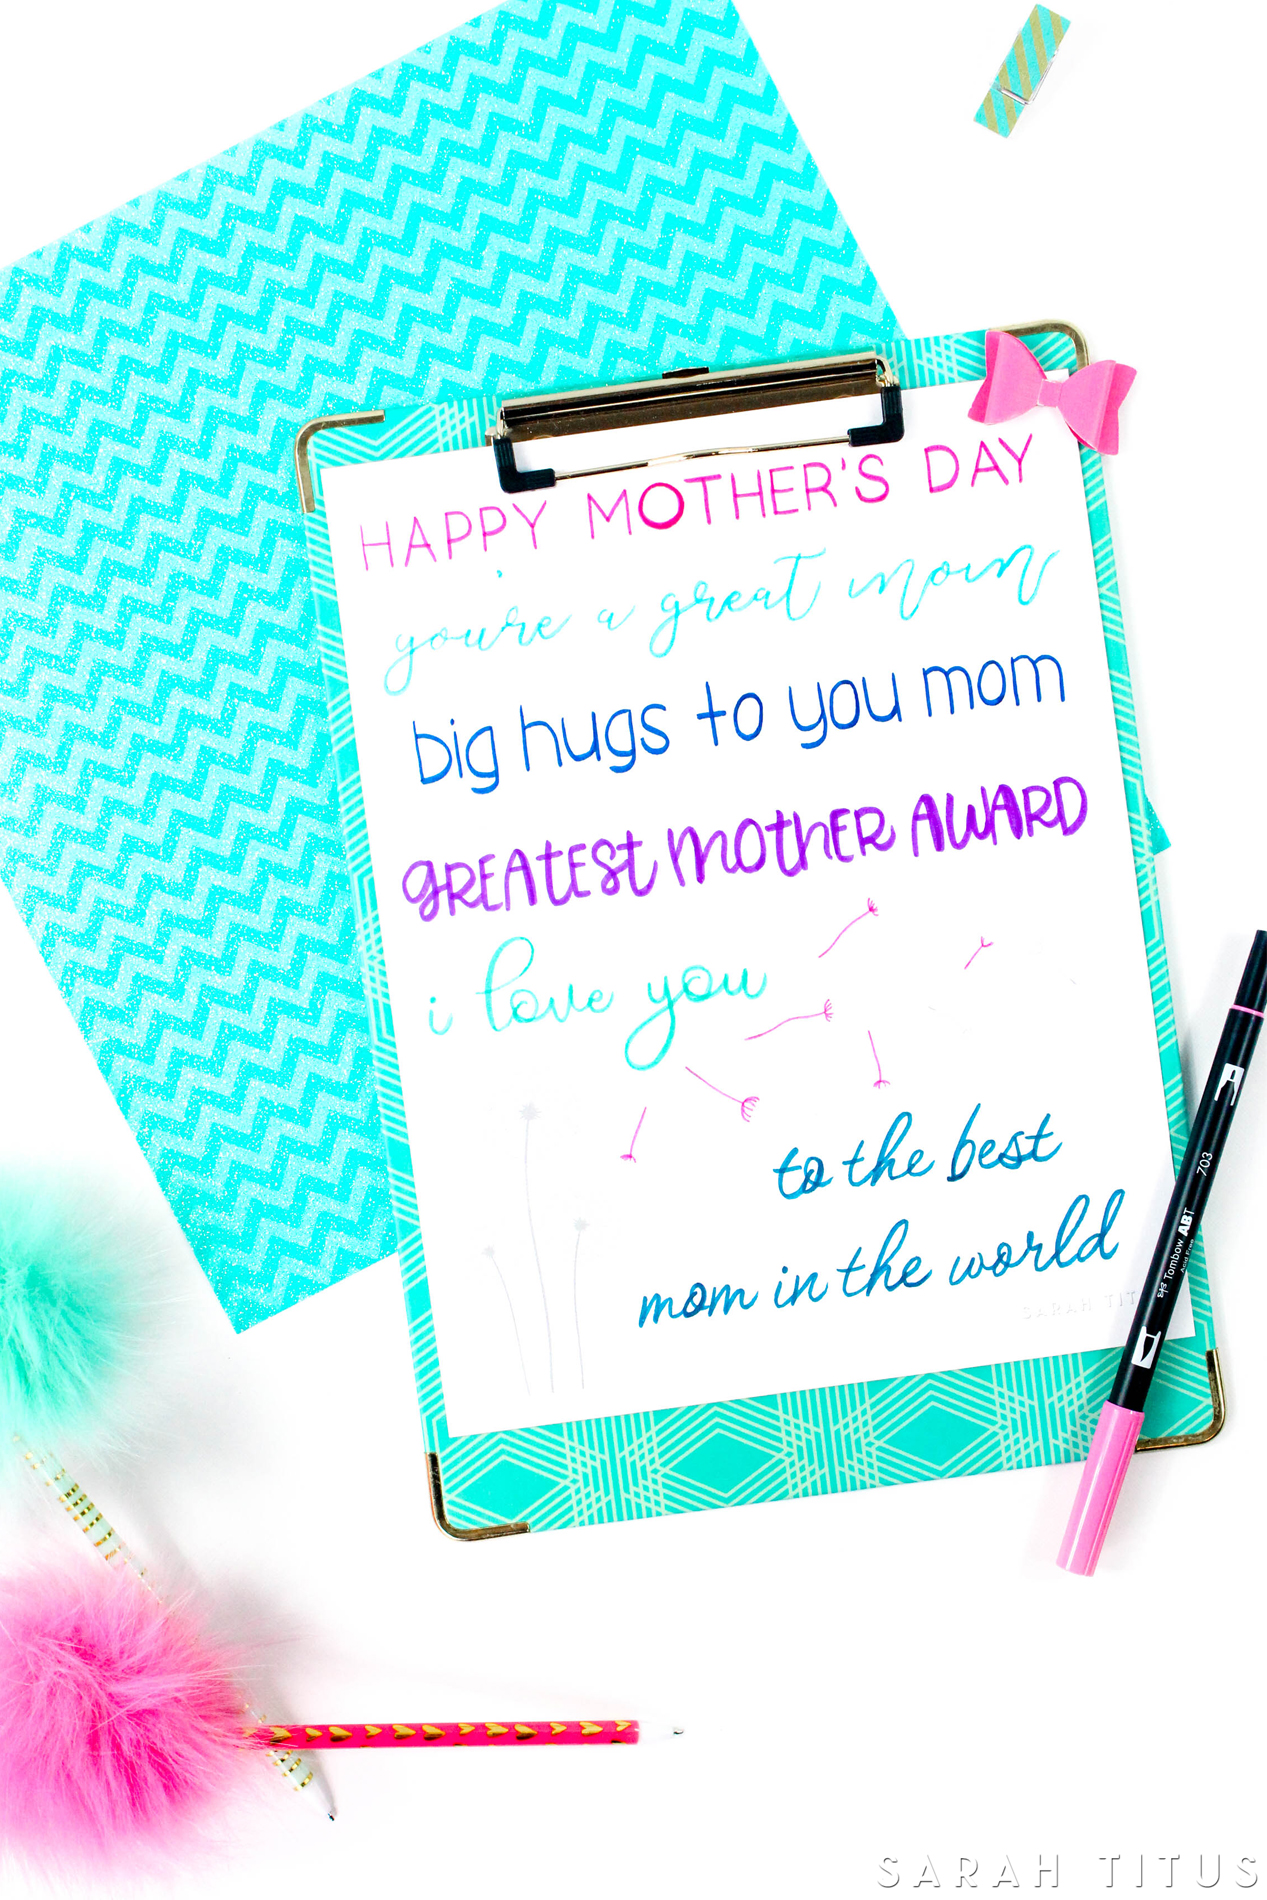 HAPPY MOTHER'S DAY
you're a great mom
big hugs to you mom
GREATEST MOTHER AWARD
i love you
to the best
mom in the world
SARAH TITUS
703
Tombow ABT
Acid Free
SARAH TITUS